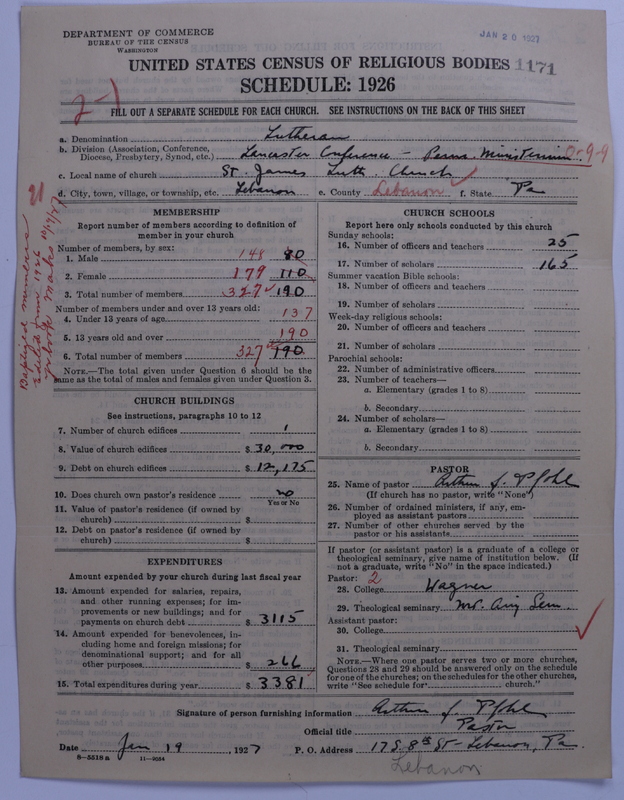 DEPARTMENT OF COMMERCE
BUREAU OF THE CENSUS
WASHINGTON
JAN 20 1927
UNITED STATES CENSUS OF RELIGIOUS BODIES 1171
SCHEDULE: 1926
2-1
FILL OUT A SEPARATE SCHEDULE FOR EACH CHURCH. SEE INSTRUCTIONS ON THE BACK OF THIS SHEET
a. Denomination Lutheran
b. Division (Association, Conference, Diocese, Presbytery, Synod, etc.) Lancaster Conference - Penna. Ministerium 9-9
c. Local name of church St. James Luth. Church
d. City, town, village, or township, etc. Lebanon e. County Lebanon f. State Pa
Baptized members
added from 1926
yr book
MEMBERSHIP
Report number of members according to definition of
member in your church
Number of members, by sex:
1. Male 148 80
2. Female 179 110
3. Total number of members 327 190
Number of members under and over 13 years old:
4. Under 13 years of age 137
5. 13 years old and over 190
6. Total number of members 327 190
NOTE.—The total given under Question 6 should be the
same as the total of males and females given under Question 3.
CHURCH BUILDINGS
See instructions, paragraphs 10 to 12
7. Number of church edifices 1
8. Value of church edifices $ 30,000
9. Debt on church edifices $ 12,175
10. Does church own pastor's residence no
Yes or No
11. Value of pastor's residence (if owned by
church) $
12. Debt on pastor's residence (if owned by
church) $
EXPENDITURES
Amount expended by your church during last fiscal year
13. Amount expended for salaries, repairs,
and other running expenses; for im-
provements or new buildings; and for
payments on church debt $ 3115
14. Amount expended for benevolences, in-
cluding home and foreign missions; for
denominational support; and for all
other purposes $ 266
15. Total expenditures during year $ 3381
CHURCH SCHOOLS
Report here only schools conducted by this church
Sunday schools:
16. Number of officers and teachers 25
17. Number of scholars 165
Summer vacation Bible schools:
18. Number of officers and teachers
19. Number of scholars
Week-day religious schools:
20. Number of officers and teachers
21. Number of scholars
Parochial schools:
22. Number of administrative officers
23. Number of teachers—
a. Elementary (grades 1 to 8)
b. Secondary
24. Number of scholars—
a. Elementary (grades 1 to 8)
b. Secondary
PASTOR
25. Name of pastor Arthur J. Pfohl
(If church has no pastor, write "None")
26. Number of ordained ministers, if any, em-
ployed as assistant pastors
27. Number of other churches served by the
pastor or his assistants
If pastor (or assistant pastor) is a graduate of a college or
theological seminary, give name of institution below. (If
not a graduate, write "No" in the space indicated.)
Pastor: 2
28. College Wagner
29. Theological seminary Mt. Airy Sem.
Assistant pastor:
30. College
31. Theological seminary
NOTE.—Where one pastor serves two or more churches,
Questions 28 and 29 should be answered only on the schedule
for one of the churches; on the schedules for the other churches,
write "See schedule for church."
Signature of person furnishing information Arthur J Pfohl
Official title Pastor
Date Jan 19, 1927 P. O. Address 17 S 8th St - Lebanon, Pa.
8-5518a 11-9034
Lebanon